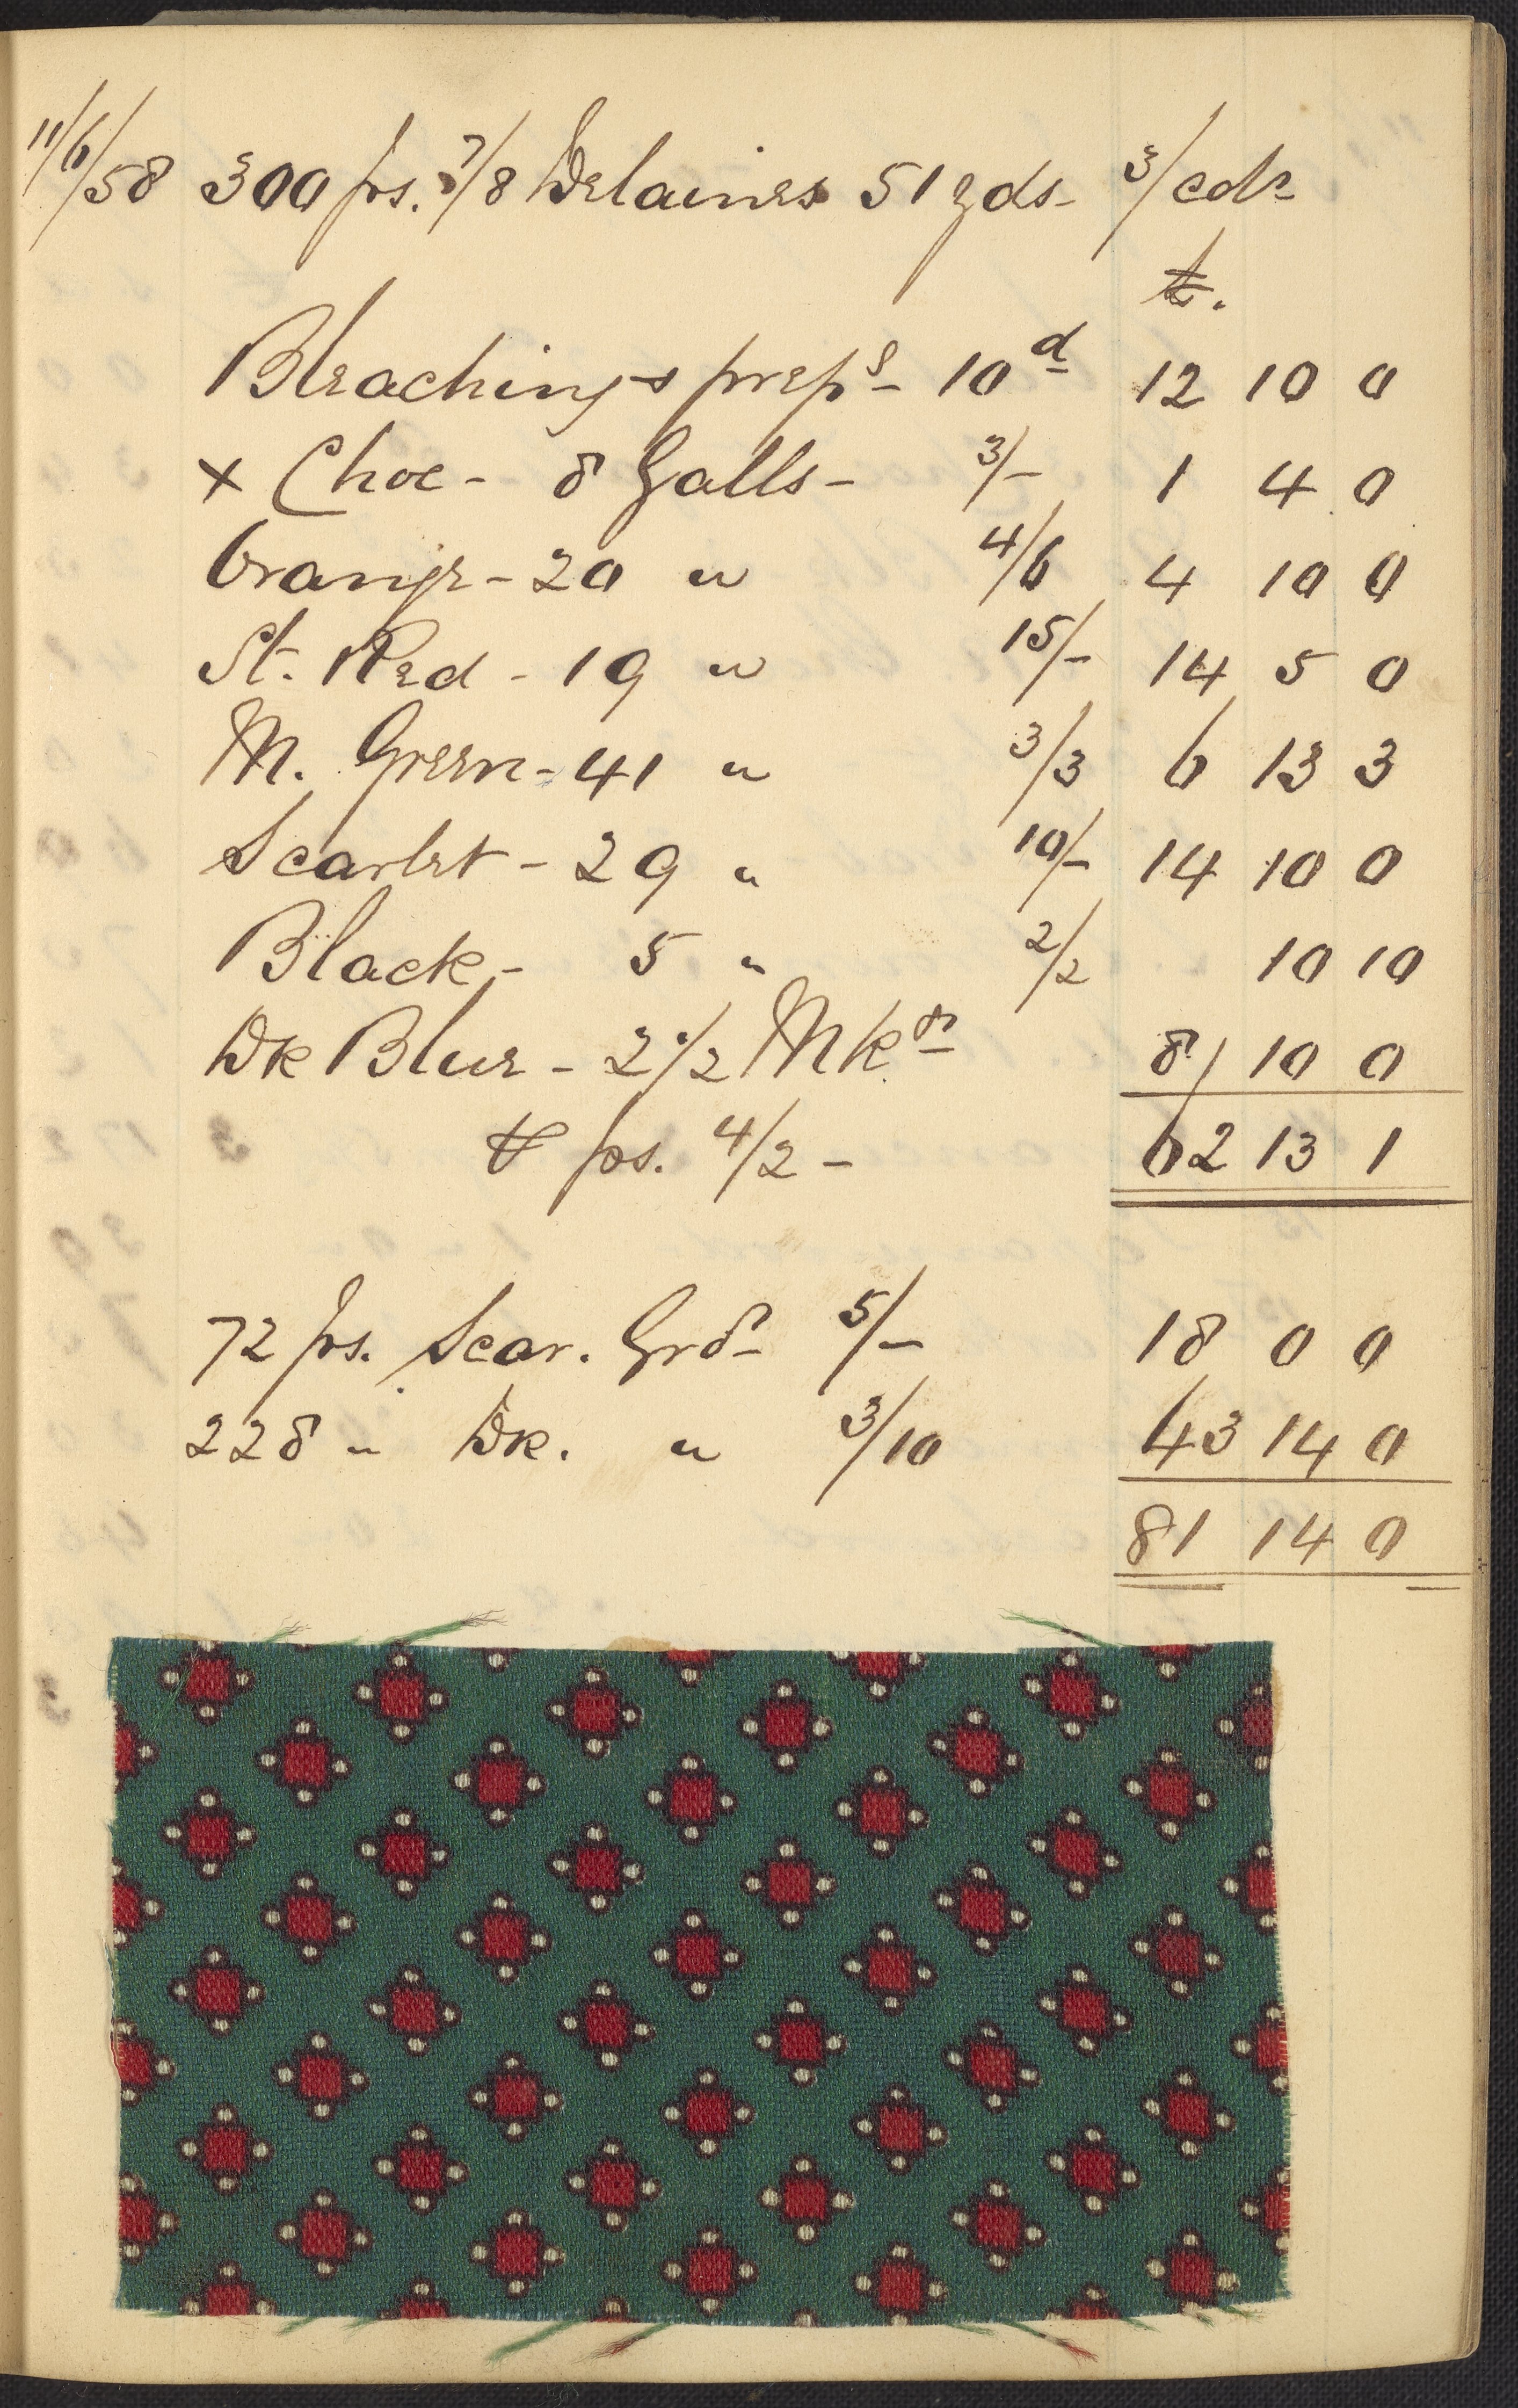 11/6/58 300 ps. 7/8 Delaines 51 yds- 3/cds
£.
Bleachings preps 10d 12 10 0
x Choc - 8 Galls - 3/- 1 4 0
Orange - 20 " 4/6 4 10 0
St. Red - 19 " 15/- 14 5 0
M. Green - 41 " 3/3 6 13 3
Scarlet - 29 " 10/- 14 10 0
Black - 5 " 2/2 10 10
Dk Blue - 2 1/2 Mks 8 10 0
ps. 4/2 - 62 13 1
72 ps. Scar. Grd- 5/- 18 0 0
228 " Dk. " 3/10 43 14 0
81 14 0